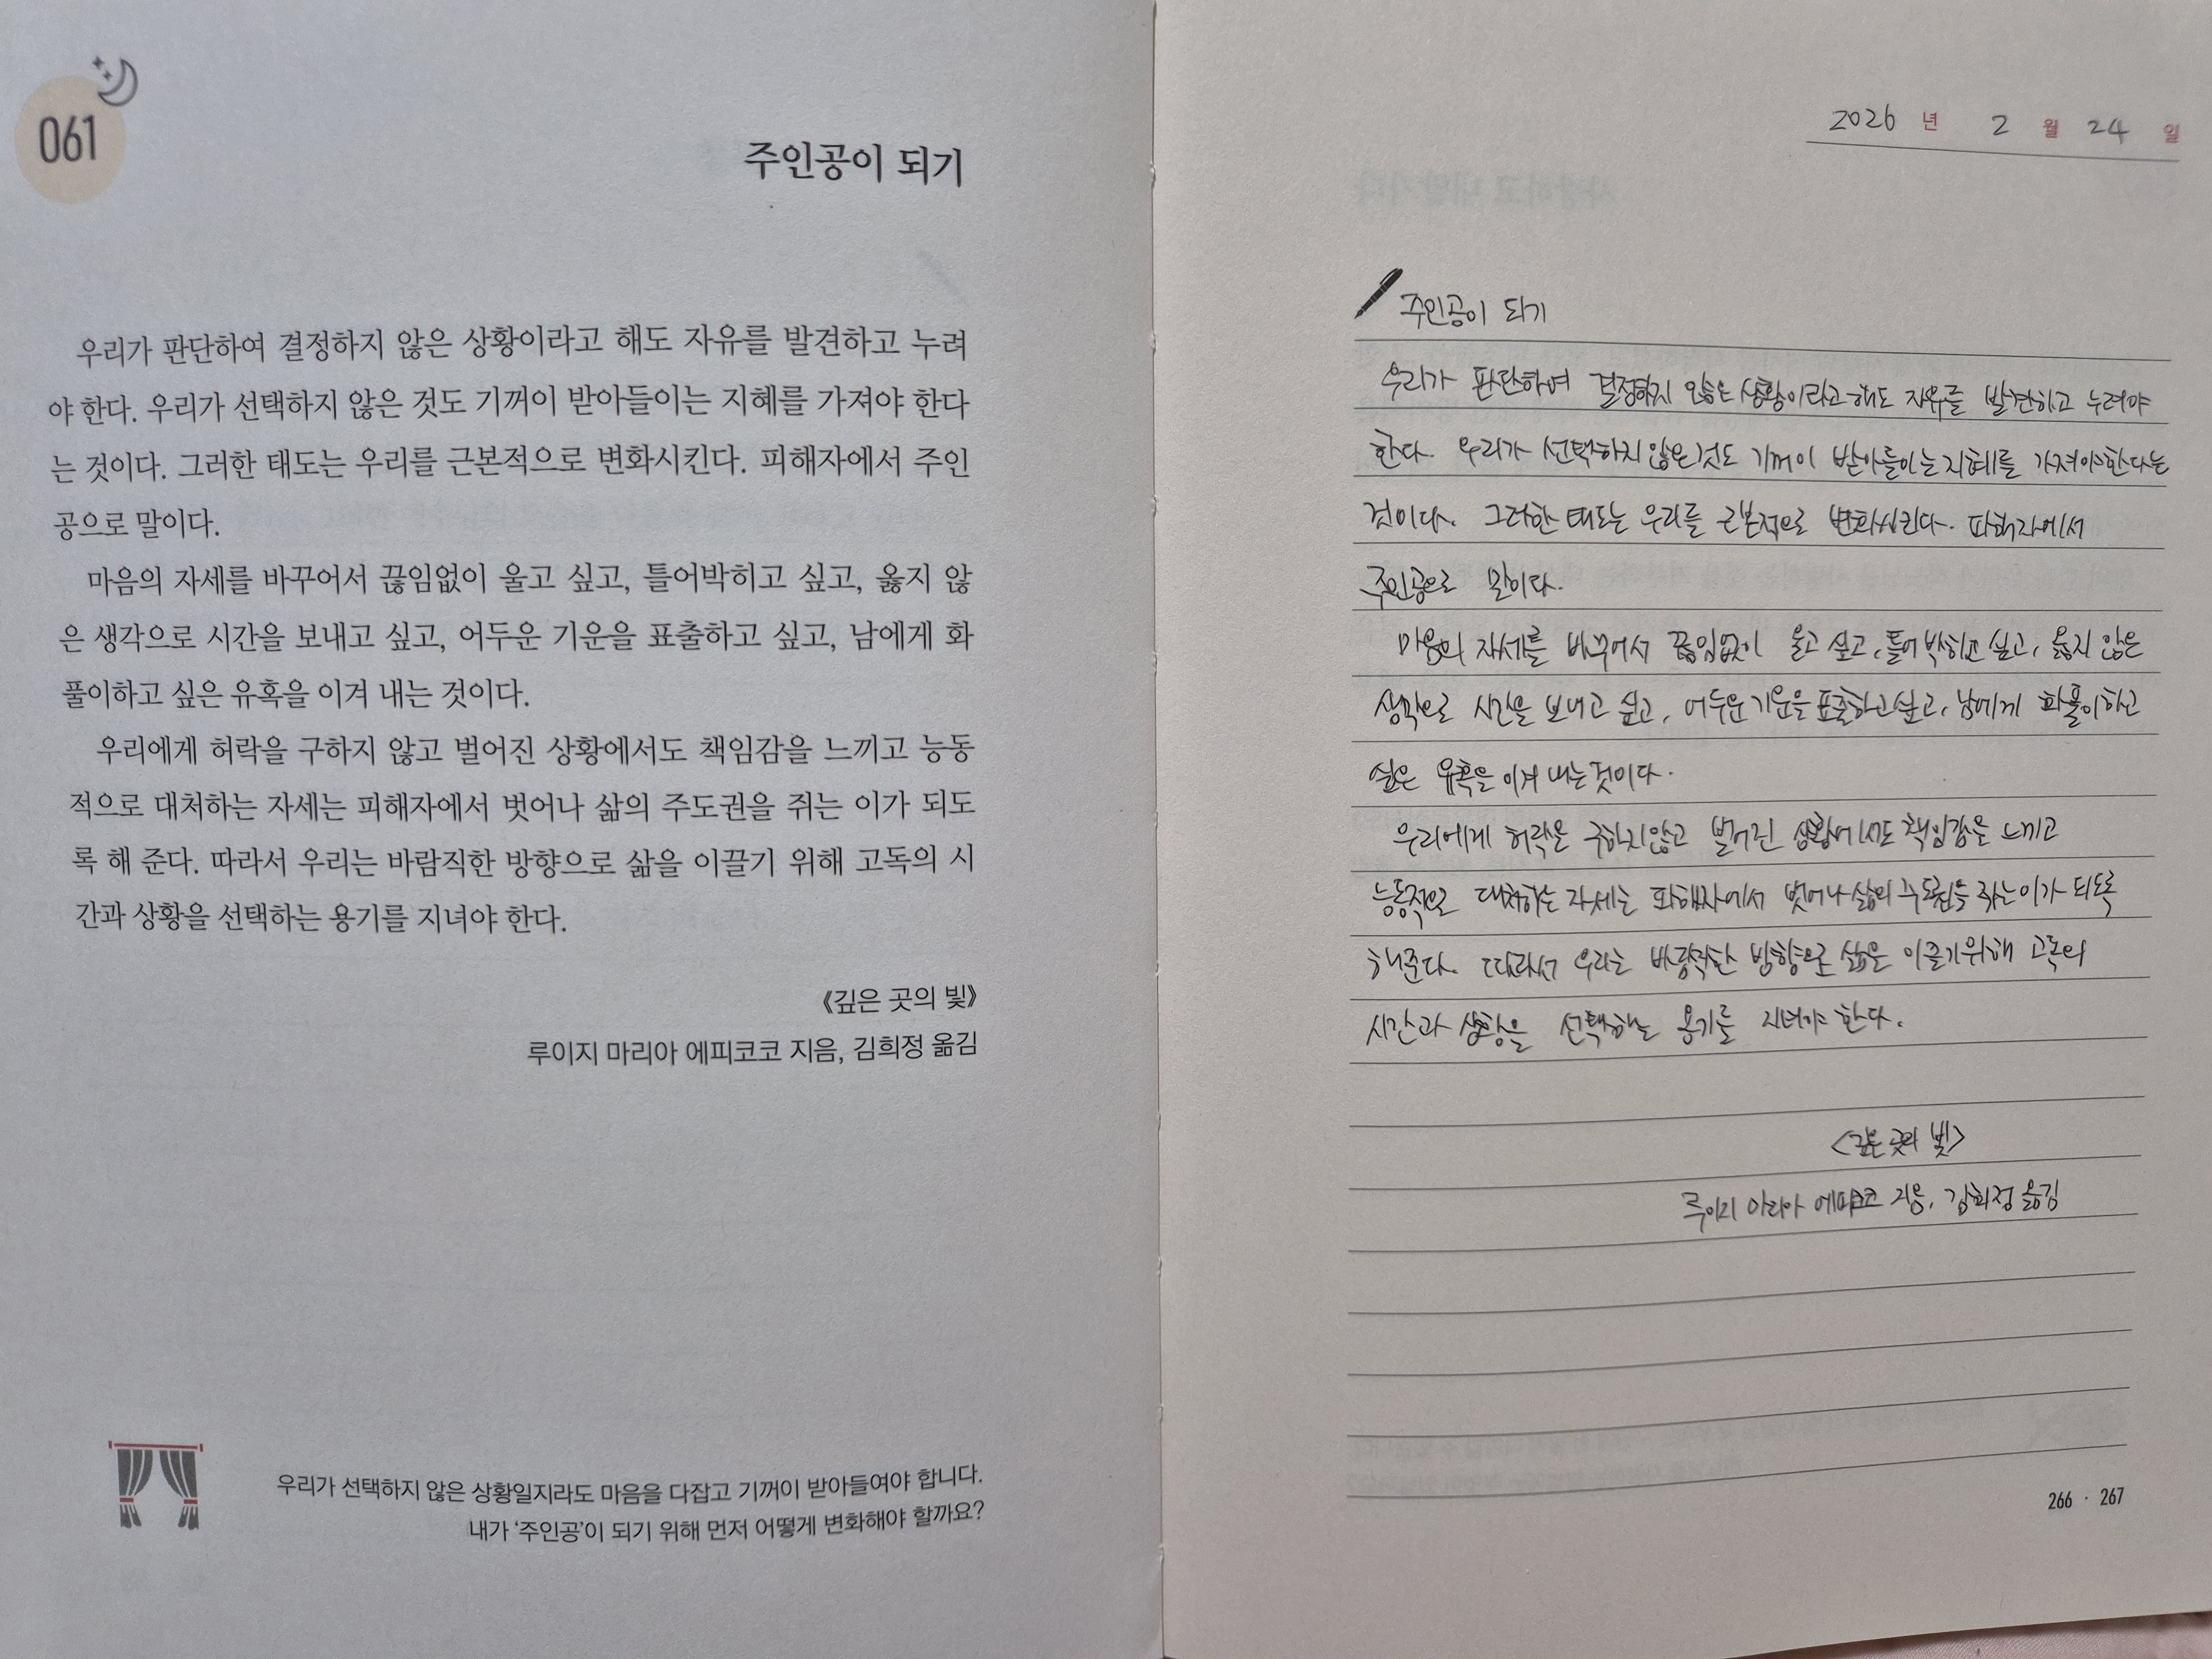 061
주인공이 되기
우리가 판단하여 결정하지 않은 상황이라고 해도 자유를 발견하고 누려
야 한다. 우리가 선택하지 않은 것도 기꺼이 받아들이는 지혜를 가져야 한다
는 것이다. 그러한 태도는 우리를 근본적으로 변화시킨다. 피해자에서 주인
공으로 말이다.
마음의 자세를 바꾸어서 끊임없이 울고 싶고, 틀어박히고 싶고, 옳지 않
은 생각으로 시간을 보내고 싶고, 어두운 기운을 표출하고 싶고, 남에게 화
풀이하고 싶은 유혹을 이겨 내는 것이다.
우리에게 허락을 구하지 않고 벌어진 상황에서도 책임감을 느끼고 능동
적으로 대처하는 자세는 피해자에서 벗어나 삶의 주도권을 쥐는 이가 되도
록 해 준다. 따라서 우리는 바람직한 방향으로 삶을 이끌기 위해 고독의 시
간과 상황을 선택하는 용기를 지녀야 한다.
《깊은 곳의 빛》
루이지 마리아 에피코코 지음, 김희정 옮김
우리가 선택하지 않은 상황일지라도 마음을 다잡고 기꺼이 받아들여야 합니다.
내가 '주인공'이 되기 위해 먼저 어떻게 변화해야 할까요?
2026 년 2 월 24 일
주인공이 되기
우리가 판단하여 결정하지 않은 상황이라고 해도 자유를 발견하고 누려야
한다. 우리가 선택하지 않은 것도 기꺼이 받아들이는 지혜를 가져야 한다는
것이다. 그러한 태도는 우리를 근본적으로 변화시킨다. 피해자에서
주인공으로 말이다.
마음의 자세를 바꾸어서 끊임없이 울고 싶고, 틀어 박히고 싶고, 옳지 않은
생각으로 시간을 보내고 싶고, 어두운 기운을 표출하고 싶고, 남에게 화풀이하고
싶은 유혹을 이겨 내는 것이다.
우리에게 허락을 구하지 않고 벌어진 상황에서도 책임감을 느끼고
능동적으로 대처하는 자세는 피해자에서 벗어나 삶의 주도권을 쥐는 이가 되도록
해준다. 따라서 우리는 바람직한 방향으로 삶을 이끌기 위해 고독의
시간과 상황을 선택하는 용기를 지녀야 한다.
<깊은 곳의 빛>
루이지 마리아 에피코코 지음, 김희정 옮김
266 · 267